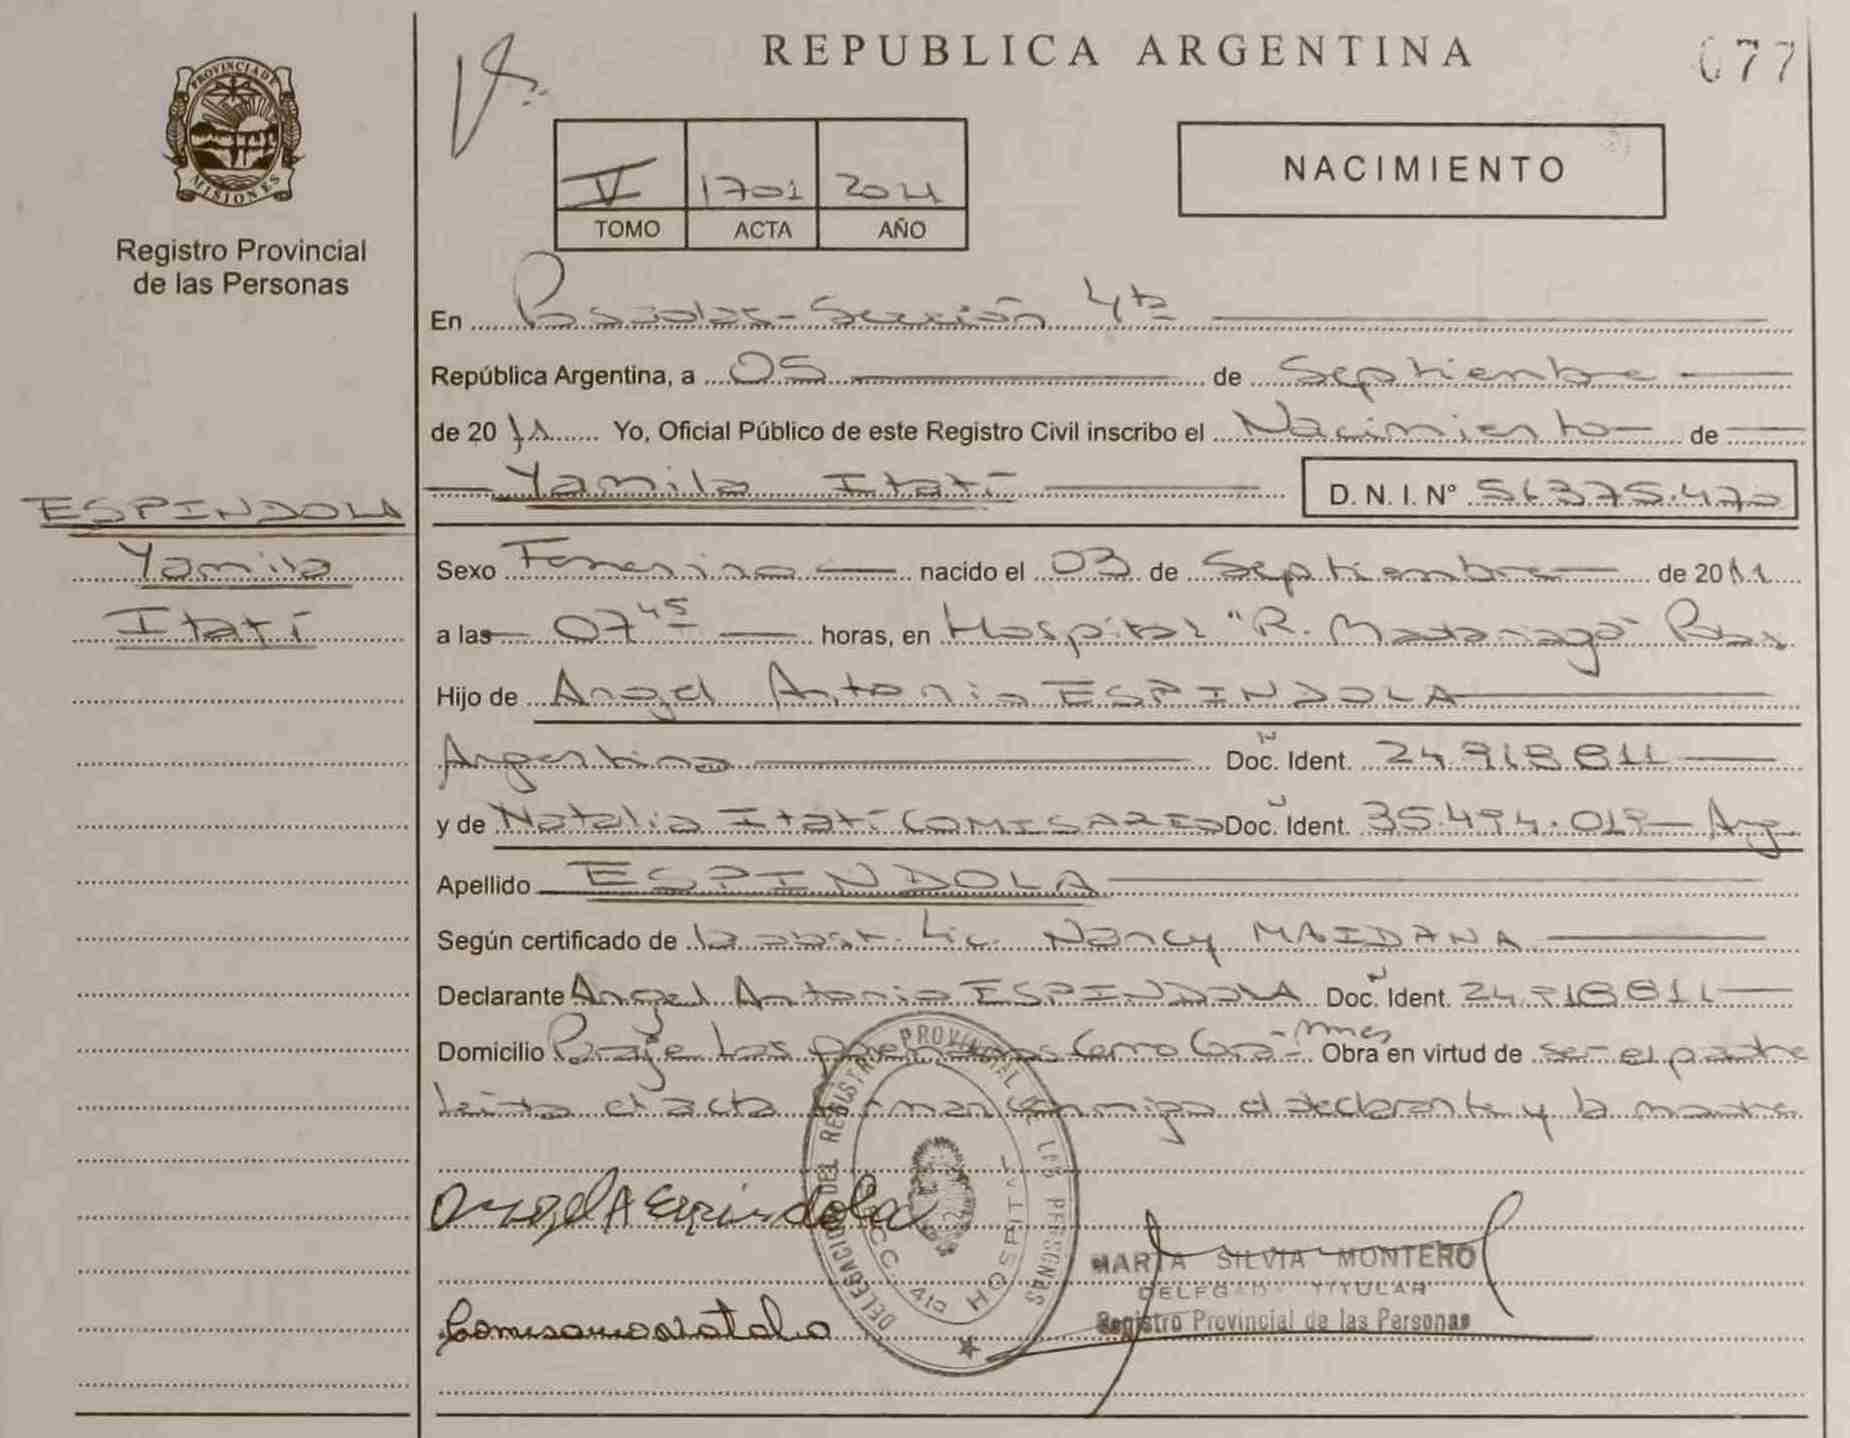 REPUBLICA ARGENTINA
077
PROVINCIA DE MISIONES
Registro Provincial
de las Personas
V 1701 2011
TOMO ACTA AÑO
NACIMIENTO
En Posadas - Sección 4ta
República Argentina, a 05 de Septiembre
de 2011 Yo, Oficial Público de este Registro Civil inscribo el Nacimiento de
Yamila Itatí D. N. I. N° 51.375.470
ESPINDOLA
Yamila
Itatí
Sexo Femenino nacido el 03 de Septiembre de 2011
a las 07 45 horas, en Hospital "R. Madariaga" Pdas
Hijo de Angel Antonio ESPINDOLA
Argentino Doc. Ident. 24.918811
y de Natalia Itatí COMISARIO Doc. Ident. 35.494.019 - Arg.
Apellido ESPINDOLA
Según certificado de la obst. Lic. Nancy MAIDANA
Declarante Angel Antonio ESPINDOLA Doc. Ident. 24.918811
Domicilio Paraje Los Cerro Corá - Mnes Obra en virtud de ser el padre
leída el acta firman conmigo el declarante y la madre
Angel A Espindola
DELEGACION DEL REGISTRO PROVINCIAL DE LAS PERSONAS
HOSPITAL
MARTA SILVIA MONTERO
DELEGADA TITULAR
Registro Provincial de las Personas
Comisario Natalia